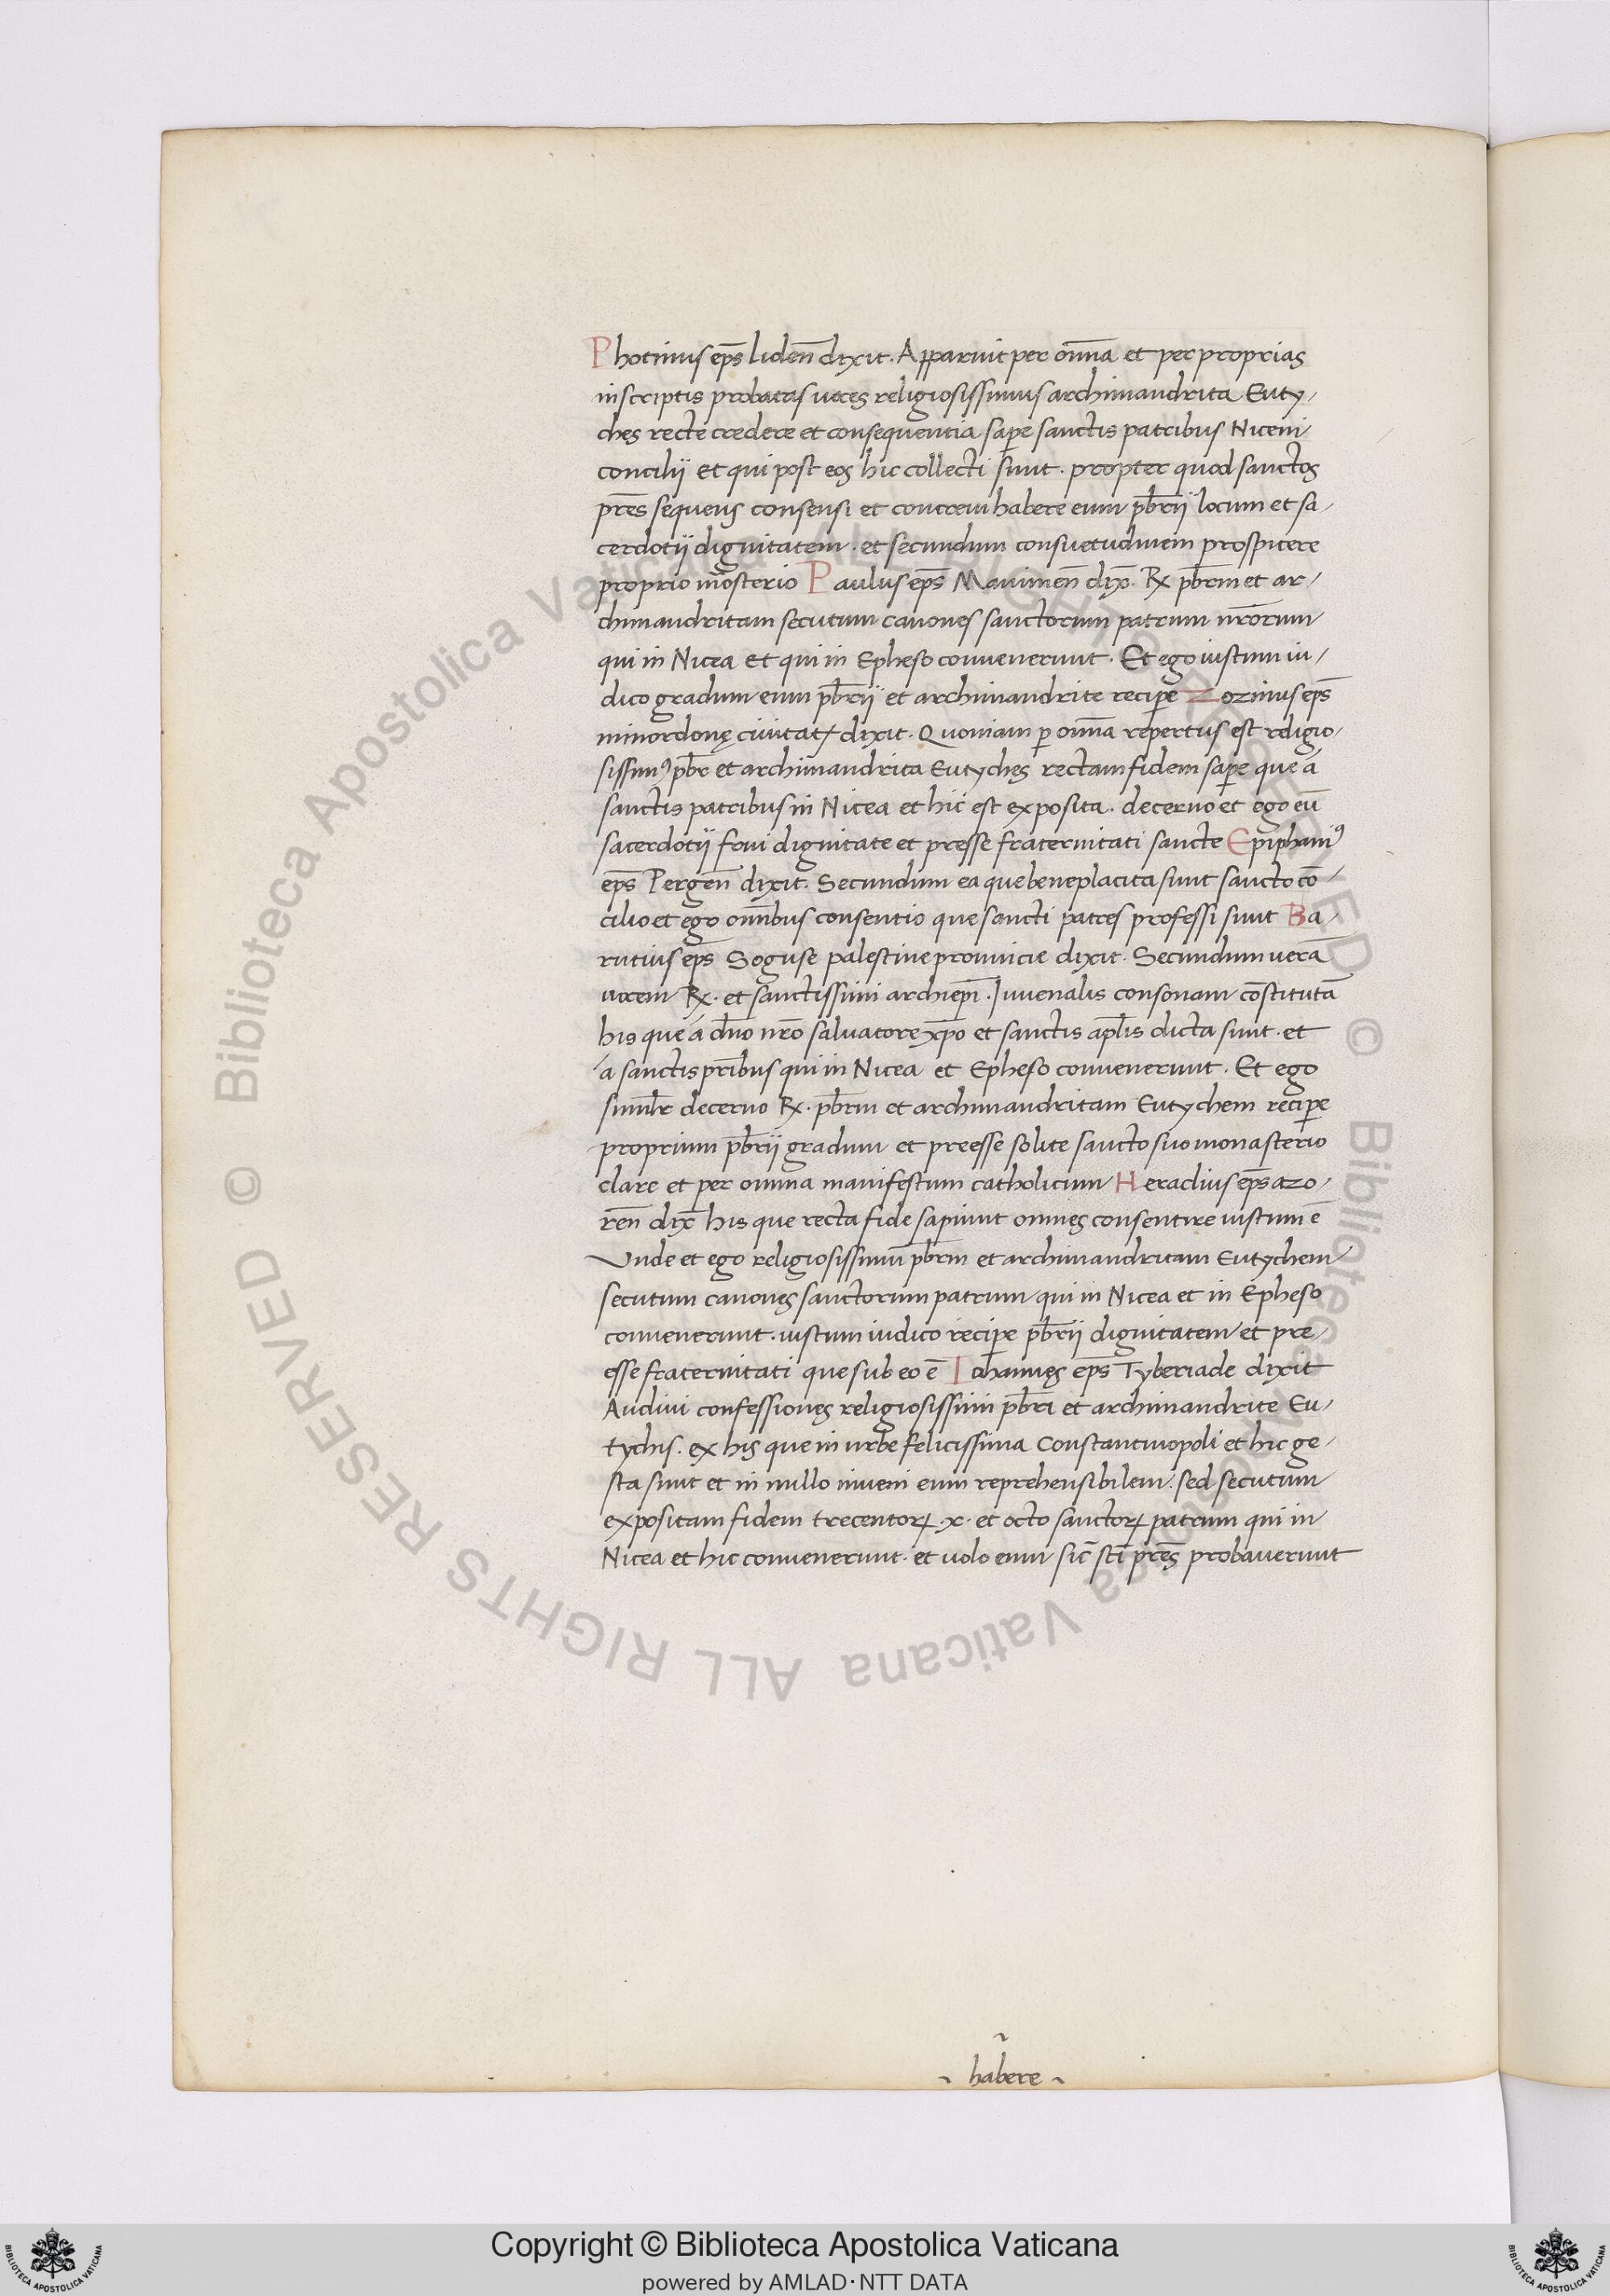 Photinus ep̄s liden̄ dixit. Apparuit per om̄a et per proprias
inscriptis probatas uoces religiosissimus archimandrita Euty-
ches recte credere et consequentia sap̲e sanctis patribus Niceni
concilij et qui post eos hic collecti sunt. propter quod sanctos
pr̄es sequens consensi et concreui habere eum pb̄rij locum et sa-
cerdotij dignitatem. et secundum consuetudinem prospicere
proprio mōsterio Paulus ep̄s Maximen̄ dix̄. ℞ pb̄rm et ar-
chimandritam secutum canones sanctorum patrum nr̄orum
qui in Nicea et qui in Epheso conuenerunt. Et ego iustum iu-
dico gradum eum pb̄rij et archimandrite recip̲e Zozimus ep̄s
minordonę ciuitatꝭ dixit. Quoniam ꝑ om̄a repertus est religio-
sissimꝰ pb̄r et archimandrita Eutyches rectam fidem sap̲e que a
sanctis patribus in Nicea et hic est exposita. decerno et ego eū
sacerdotij frui dignitate et preesse fraternitati sancte Epiphaniꝰ
ep̄s Pergen̄ dixit. Secundum ea que beneplacita sunt sancto cō-
cilio et ego om̄ibus consentio que sancti patres professi sunt Ba-
rutius ep̄s Soguse palestine prouincie dixit. Secundum uerā
uocem ℞. et sanctissimi archiep̄i. Juuenalis consonam cōstitutā
his que a dn̄o nr̄o saluatore xp̄o et sanctis apl̄is dicta sunt. et
a sanctis pr̄ibus qui in Nicea et Epheso conuenerunt. Et ego
simil̄r decerno ℞. pb̄rm et archimandritam Eutychem recip̲e
proprium pb̄rij gradum et preesse solite sancto suo monasterio
clare et per omnia manifestum catholicum Heraclius ep̄s azo-
ren̄ dix̄ his que recta fide sapiunt omnes consentire iustum ē
Vnde et ego religiosissimū pb̄rm et archimandritam Eutychem
secutum canones sanctorum patrum qui in Nicea et in Epheso
conuenerunt. iustum iudico recip̲e pb̄rij dignitatem et pre-
esse fraternitati que sub eo ē Iohannes ep̄s Tyberiade dixit
Audiui confessiones religiosissimi pb̄ri et archimandrite Eu-
tychis. ex his que in urbe felicissima Constantinopoli et hic ge-
sta sunt et in nullo inueni eum reprehensibilem. sed secutum
expositam fidem trecentoꝝ .x. et octo sanctoꝝ patrum qui in
Nicea et hic conuenerunt. et uolo eum sic̄ sc̄i pr̄es probauerunt
habere
© Biblioteca Apostolica Vaticana ALL RIGHTS RESERVED © Biblioteca Apostolica Vaticana ALL RIGHTS RESERVED
Copyright © Biblioteca Apostolica Vaticana
powered by AMLAD·NTT DATA
BIBLIOTECA APOSTOLICA VATICANA
BIBLIOTECA APOSTOLICA VATICANA